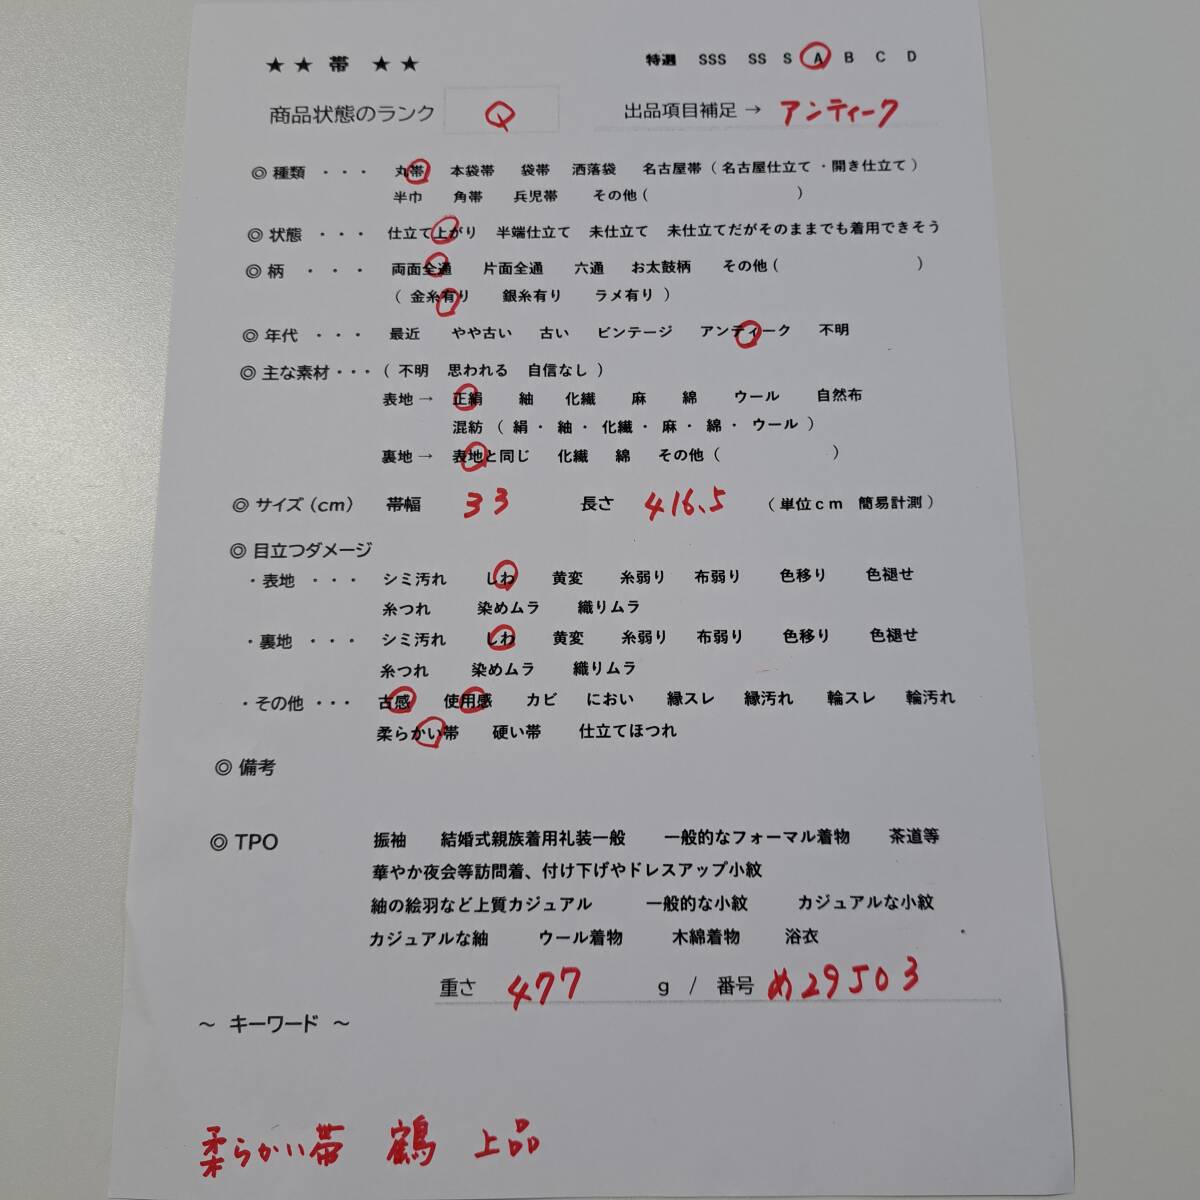 ★ ★ 帯 ★ ★ 特選 SSS SS S A B C D
商品状態のランク Q 出品項目補足 → アンティーク
◎ 種類 ・・・ 丸帯 本袋帯 袋帯 洒落袋 名古屋帯 ( 名古屋仕立て ・ 開き仕立て )
半巾 角帯 兵児帯 その他 ( )
◎ 状態 ・・・ 仕立て上がり 半端仕立て 未仕立て 未仕立てだがそのままでも着用できそう
◎ 柄 ・・・ 両面全通 片面全通 六通 お太鼓柄 その他 ( )
( 金糸有り 銀糸有り ラメ有り )
◎ 年代 ・・・ 最近 やや古い 古い ビンテージ アンティーク 不明
◎ 主な素材・・・ ( 不明 思われる 自信なし )
表地 → 正絹 紬 化繊 麻 綿 ウール 自然布
混紡 ( 絹 ・ 紬 ・ 化繊 ・ 麻 ・ 綿 ・ ウール )
裏地 → 表地と同じ 化繊 綿 その他 ( )
◎ サイズ (cm) 帯幅 33 長さ 416.5 ( 単位cm 簡易計測 )
◎ 目立つダメージ
・表地 ・・・ シミ汚れ しわ 黄変 糸弱り 布弱り 色移り 色褪せ
糸つれ 染めムラ 織りムラ
・裏地 ・・・ シミ汚れ しわ 黄変 糸弱り 布弱り 色移り 色褪せ
糸つれ 染めムラ 織りムラ
・その他 ・・・ 古感 使用感 カビ におい 縁スレ 縁汚れ 輪スレ 輪汚れ
柔らかい帯 硬い帯 仕立てほつれ
◎ 備考
◎ TPO 振袖 結婚式親族着用礼装一般 一般的なフォーマル着物 茶道等
華やか夜会等訪問着、付け下げやドレスアップ小紋
紬の絵羽など上質カジュアル 一般的な小紋 カジュアルな小紋
カジュアルな紬 ウール着物 木綿着物 浴衣
重さ 477 g / 番号 め29503
～ キーワード ～
柔らかい帯 鶴 上品